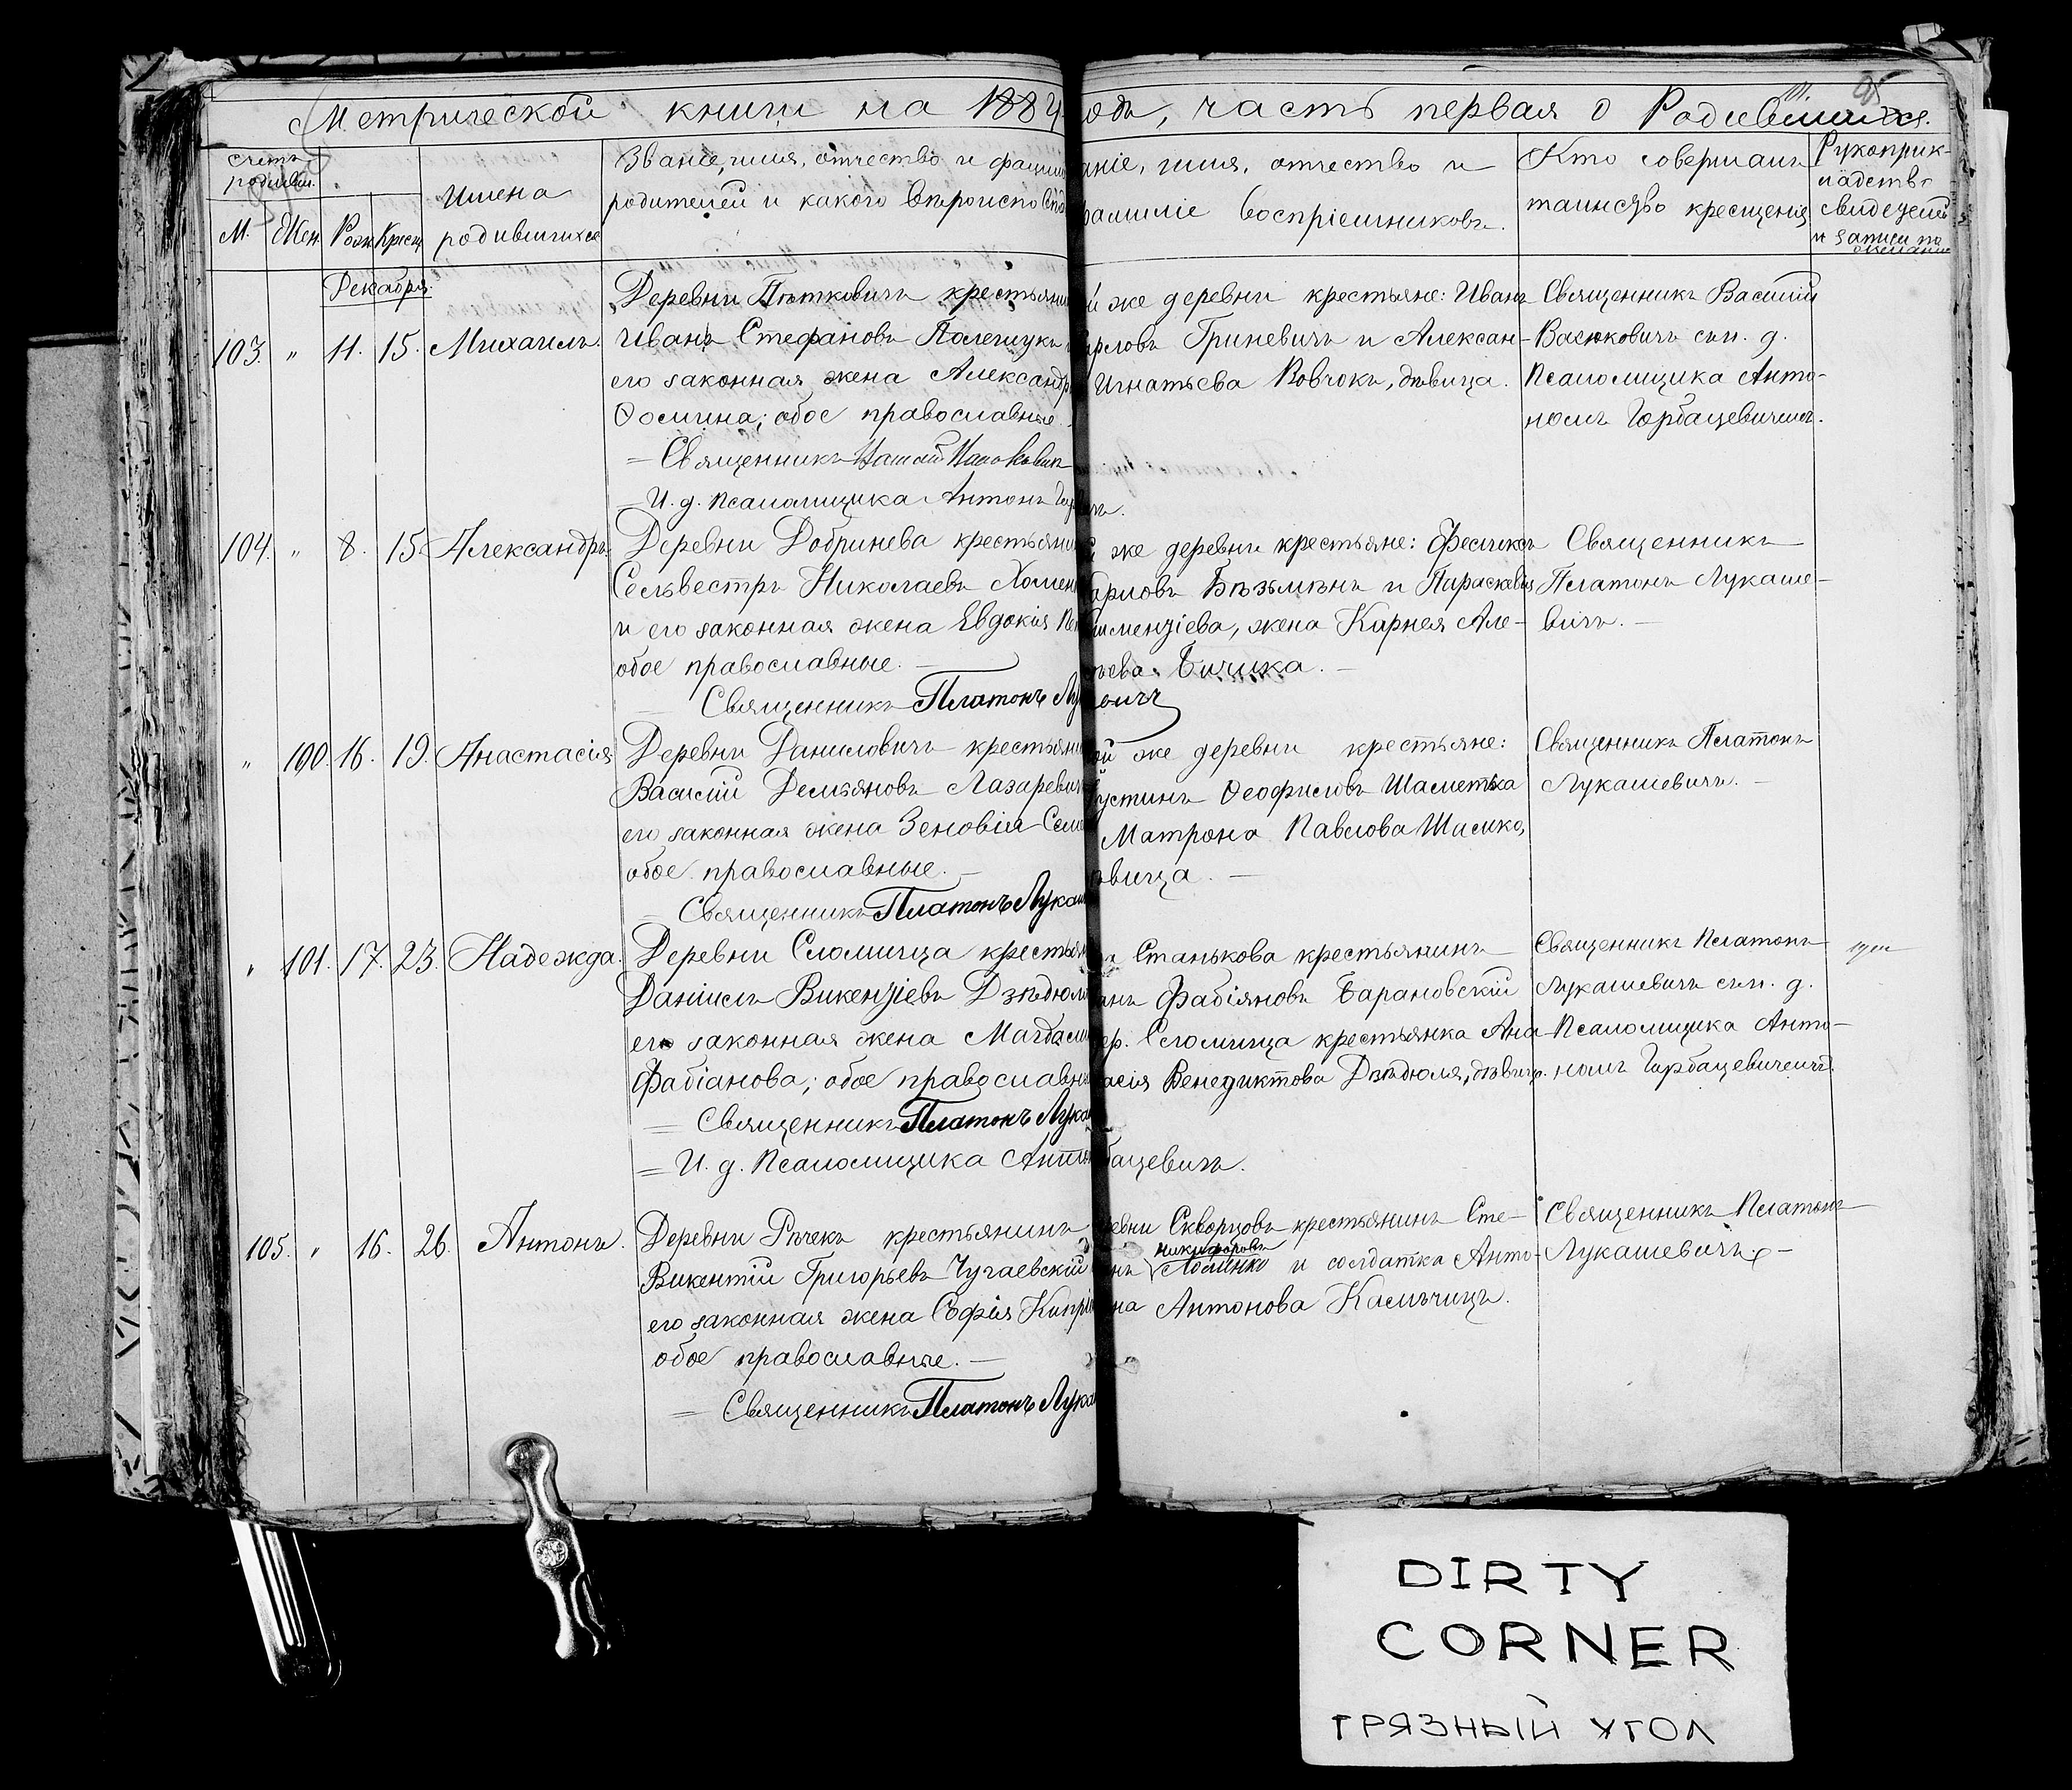 Метрической книги на 1884
одъ, часть первая о Родившихся.
95
счетъ родивш.
М.
Жен.
Рожд.
Крещ.
Имена родившихся
Званіе, имя, отчество и фамил
родителей и какого вѣроиспо
аніе, имя, отчество и
фамиліе воспріемниковъ.
Кто совершалъ
таинство крещенія
Рукоприк-
ладство
свидѣтел
и записи по
желанію
Декабря
103. " 11. 15. Михаилъ.
Деревни Пѣтковичъ крестьянин
Иванъ Стефановъ Полещукъ
его законная жена Александра
Ѳомина; обое православные.
Священникъ
И. д. псаломщика Антонъ
й же деревни крестьяне: Иванъ
рловъ Гриневичъ и Алексан-
Игнатьева Вовчокъ, дѣвица.
Священникъ Василій
Васюковичъ съ и. д.
Псаломщика Анто-
номъ Горбацевичемъ.
104. " 8. 15. Александръ
Деревни Добринева крестьянин
Сельвестръ Николаевъ Хомен
и его законная жена Евдокія
обое православные.
Священникъ Платонъ Лу
же деревни крестьяне: Феликсъ
Карповъ Бѣзъмѣнъ и Параскевія
жена Карнея Але-
ьева Бычика.
Священникъ
Платонъ Лукаше-
вичъ.
" 100. 16. 19. Анастасія
Деревни Даниловичъ крестьянин
Василій Демьяновъ Лазаревич
его законная жена Зеновія Сем
обое православные.
Священникъ Платонъ Лукаш
ой же деревни крестьяне:
устинъ Ѳеофиловъ Шаметька
Матрона Павлова Шимко,
ѣвица.
Священникъ Платонъ
Лукашевичъ.
" 101. 17. 23. Надежда.
Деревни Сломища крестьян
Даніилъ Викензіевъ Дзѣдюля
его законная жена Магдал
Фабіанова; обое православн
Священникъ Платонъ Лука
И. д. Псаломщика Антон
бацевичъ.
Станькова крестьянинъ
анъ Фабіяновъ Барановскій
ер. Сломища крестьянка Ана-
асія Венедиктова Дзѣдюля, дѣвица.
Священникъ Платонъ
Лукашевичъ съ и. д.
Псаломщика Анто-
номъ Горбацевичемъ.
105. " 16. 26. Антонъ.
Деревни Рѣчекъ крестьянинъ
Викентій Григорьевъ Чугаевскій
его законная жена Софія Кипрі
обое православные.
Священникъ Платонъ Лука
ревни Скворцовъ крестьянинъ Сте-
никифоровъ
анъ Ломенко и солдатка Анто-
на Антонова Камѣчицъ.
Священникъ Платонъ
Лукашевичъ
DIRTY
CORNER
ГРЯЗНЫЙ УГОЛ